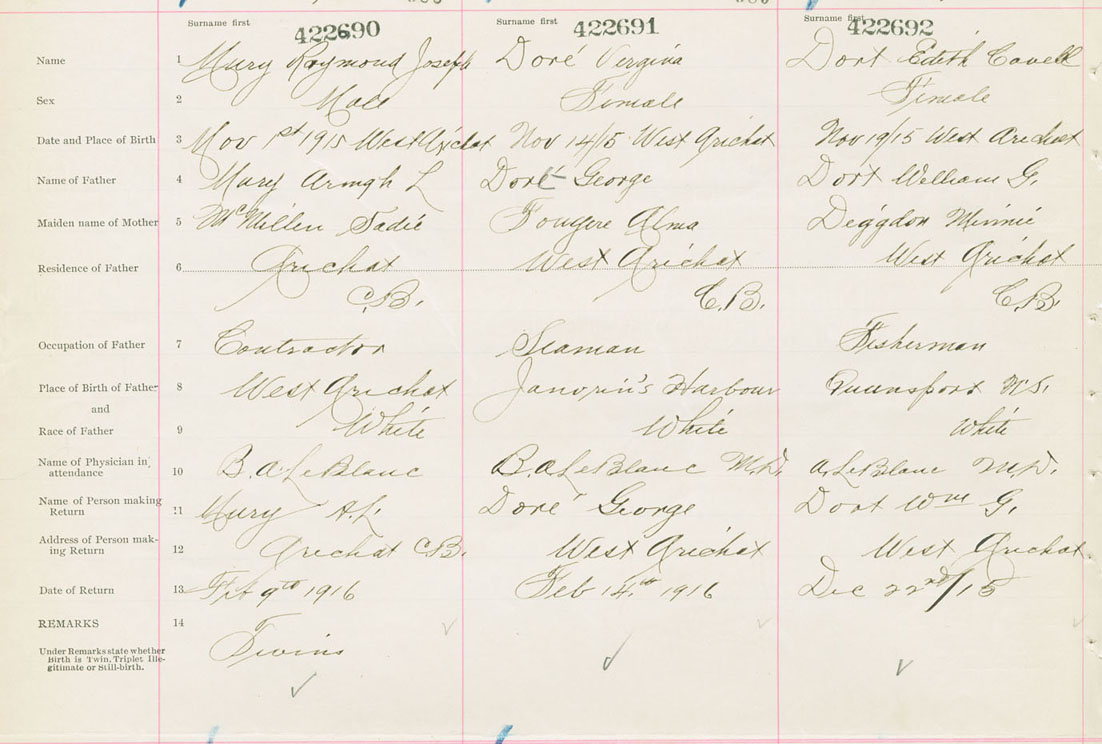 Surname first Surname first Surname first
422690 422691 422692
Name 1 Mury Raymond Joseph Doré Virgina Dort Edith Cavell
Sex 2 Male Female Female
Date and Place of Birth 3 Nov 1st 1915 West Arichat Nov 14/15 West Arichat Nov 19/15 West Arichat
Name of Father 4 Mury L Doré George Dort William G.
Maiden name of Mother 5 McMillen Sadie Fougere Alma Deggdon Minnie
Residence of Father 6 Arichat West Arichat West Arichat
C.B. C.B. C.B.
Occupation of Father 7 Contractor Seaman Fisherman
Place of Birth of Father 8 West Arichat Janvrin's Harbour Queensport N.S.
and
Race of Father 9 White White White
Name of Physician in attendance 10 B.A. LeBlanc B.A. LeBlanc M.D. A. LeBlanc M.D.
Name of Person making Return 11 Mury A.L. Doré George Dort Wm G.
Address of Person making Return 12 Arichat C.B. West Arichat West Arichat
Date of Return 13 9th 1916 Feb 14th 1916 Dec 22nd/15
REMARKS 14
Under Remarks state whether Twins
Birth is Twin, Triplet Ille-
gitimate or Still-birth.